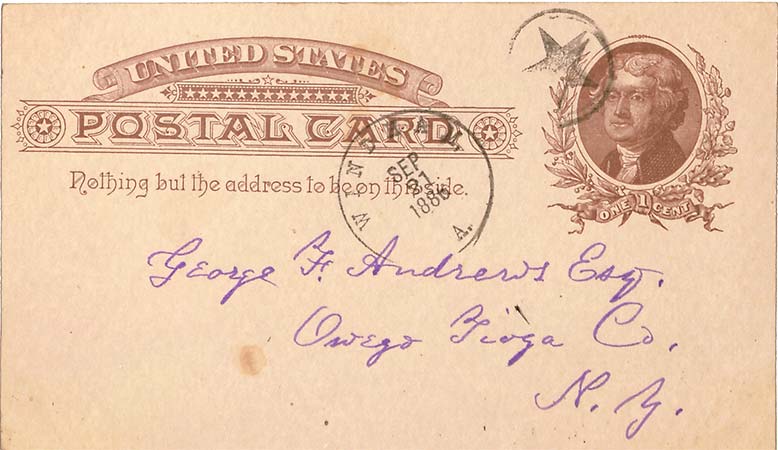 UNITED STATES
POSTAL CARD
Nothing but the address to be on this side.
WINDHAM. A.
SEP
1886
ONE 1 CENT
George F. Andrews Esq.
Owego Tioga Co.
N. Y.